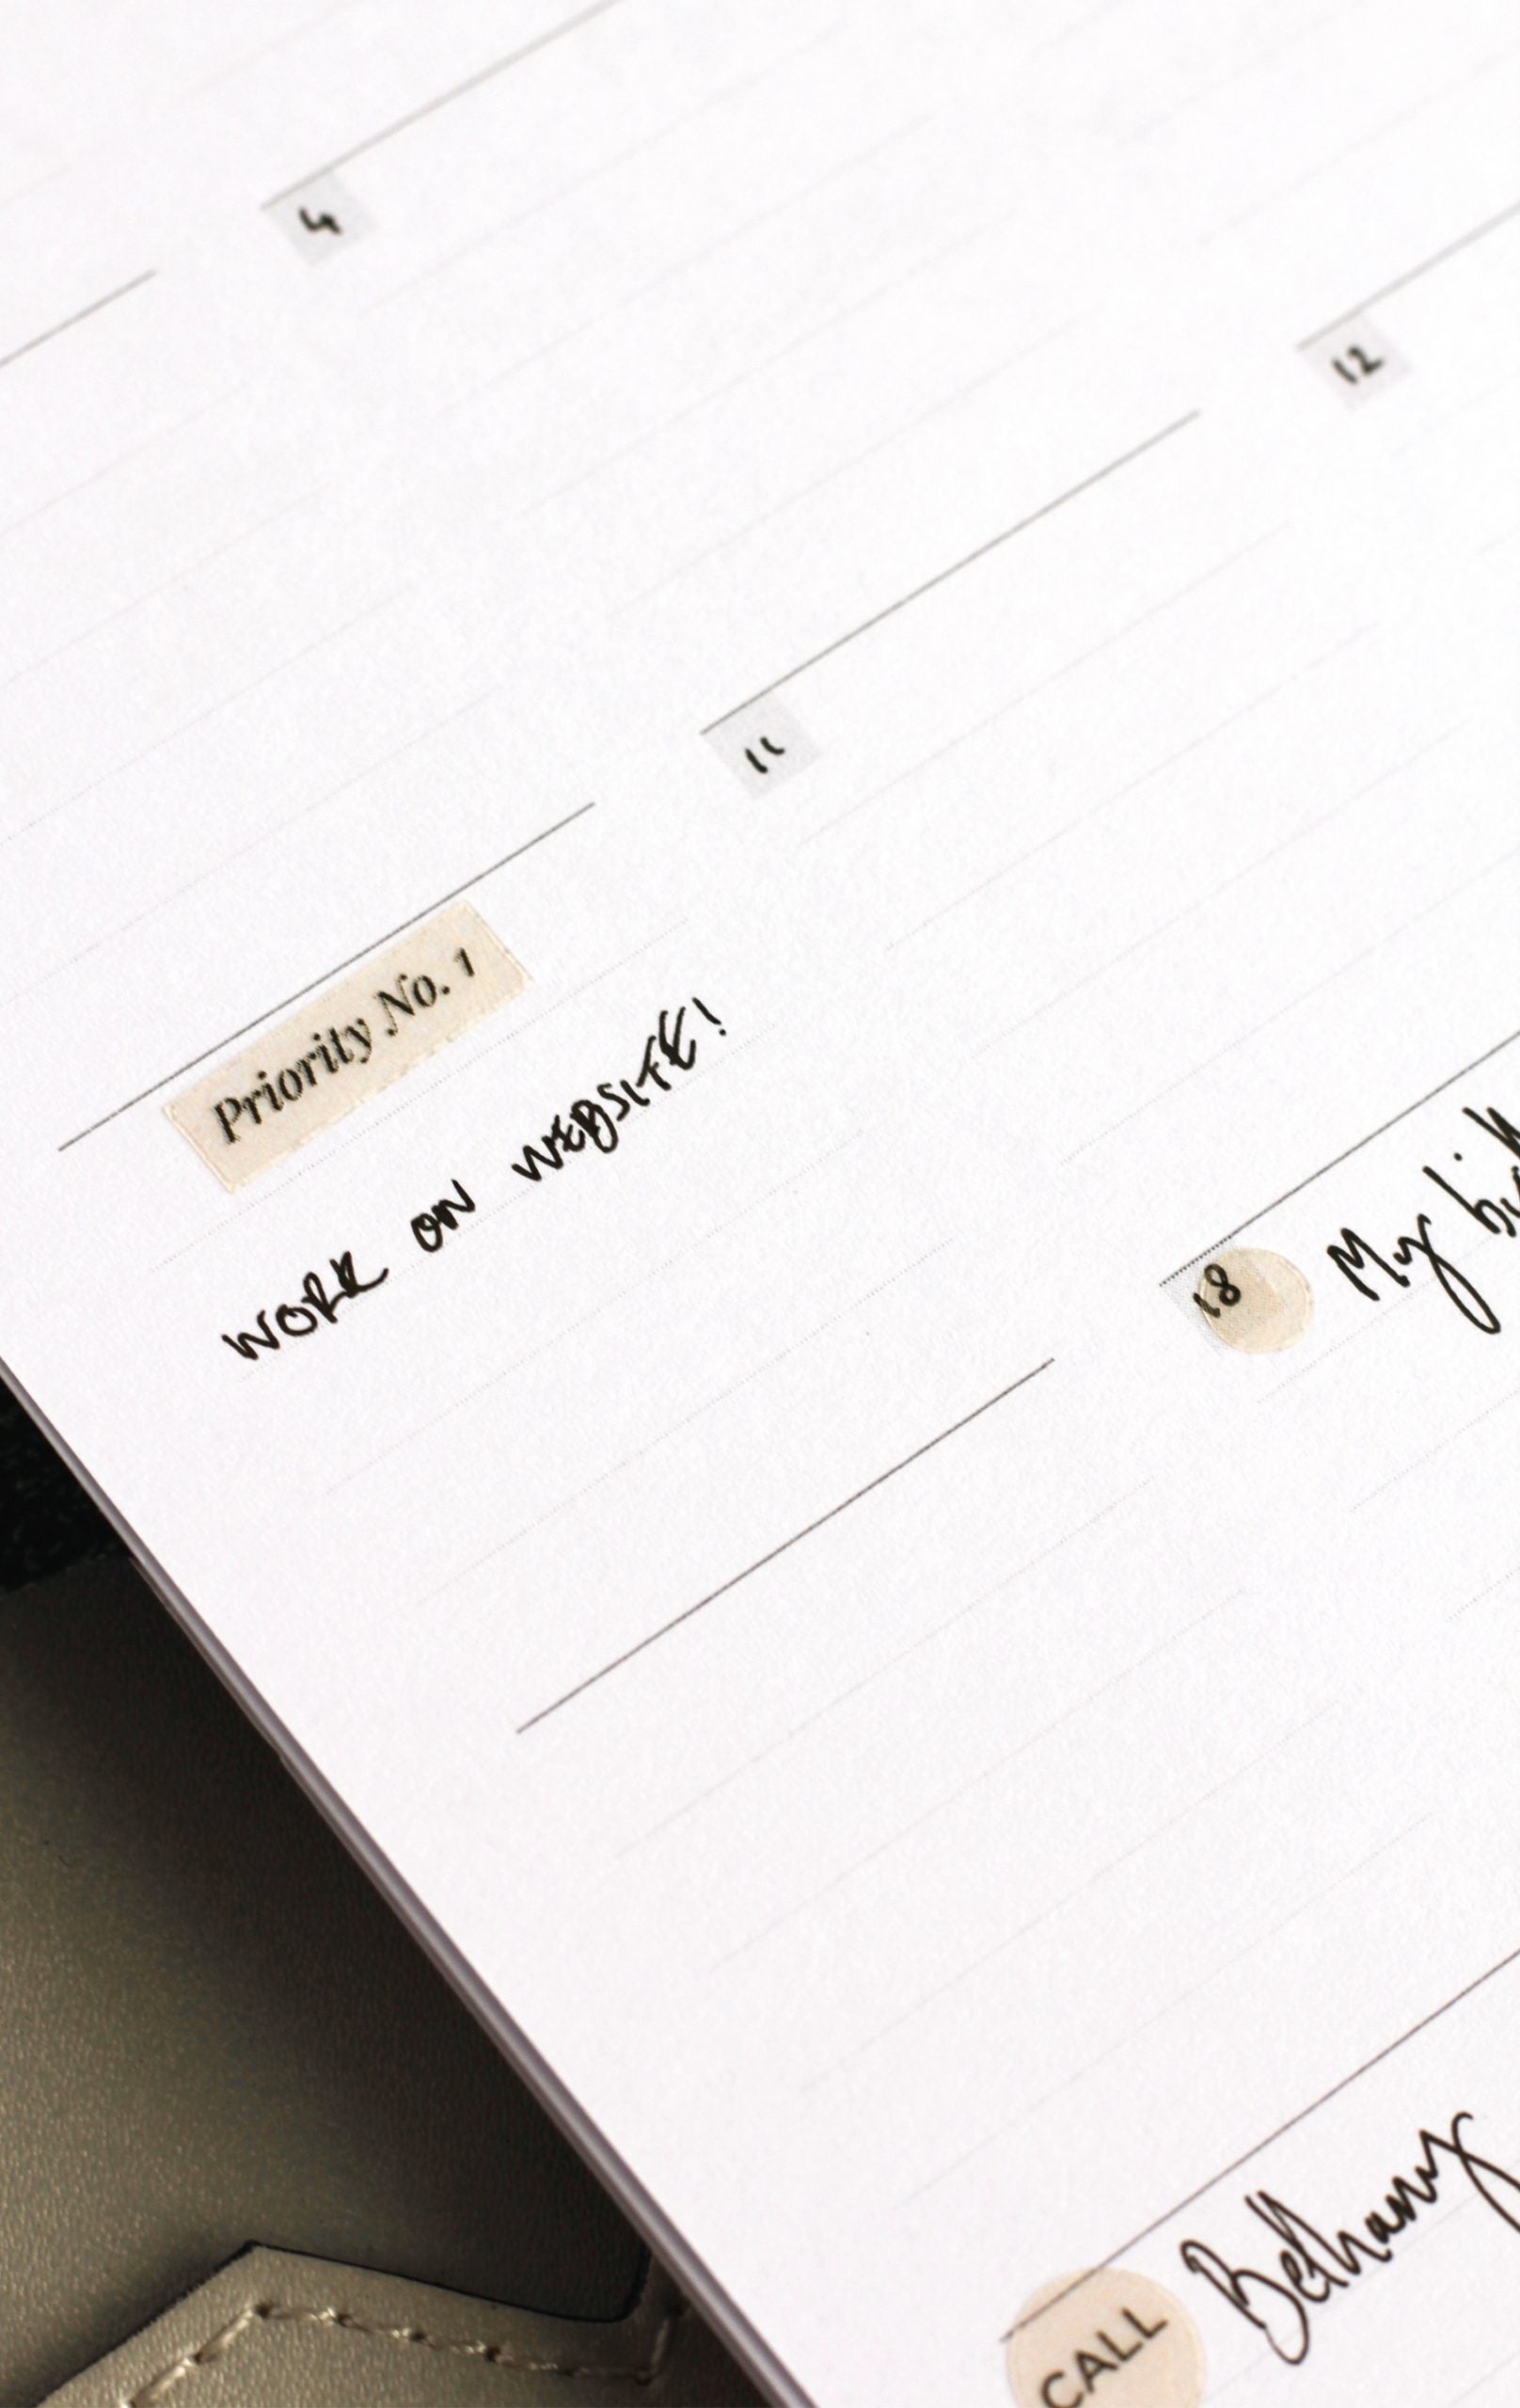 4
12
11
Priority No. 1
WORK ON WEBSITE!
18 My
CALL Bethany